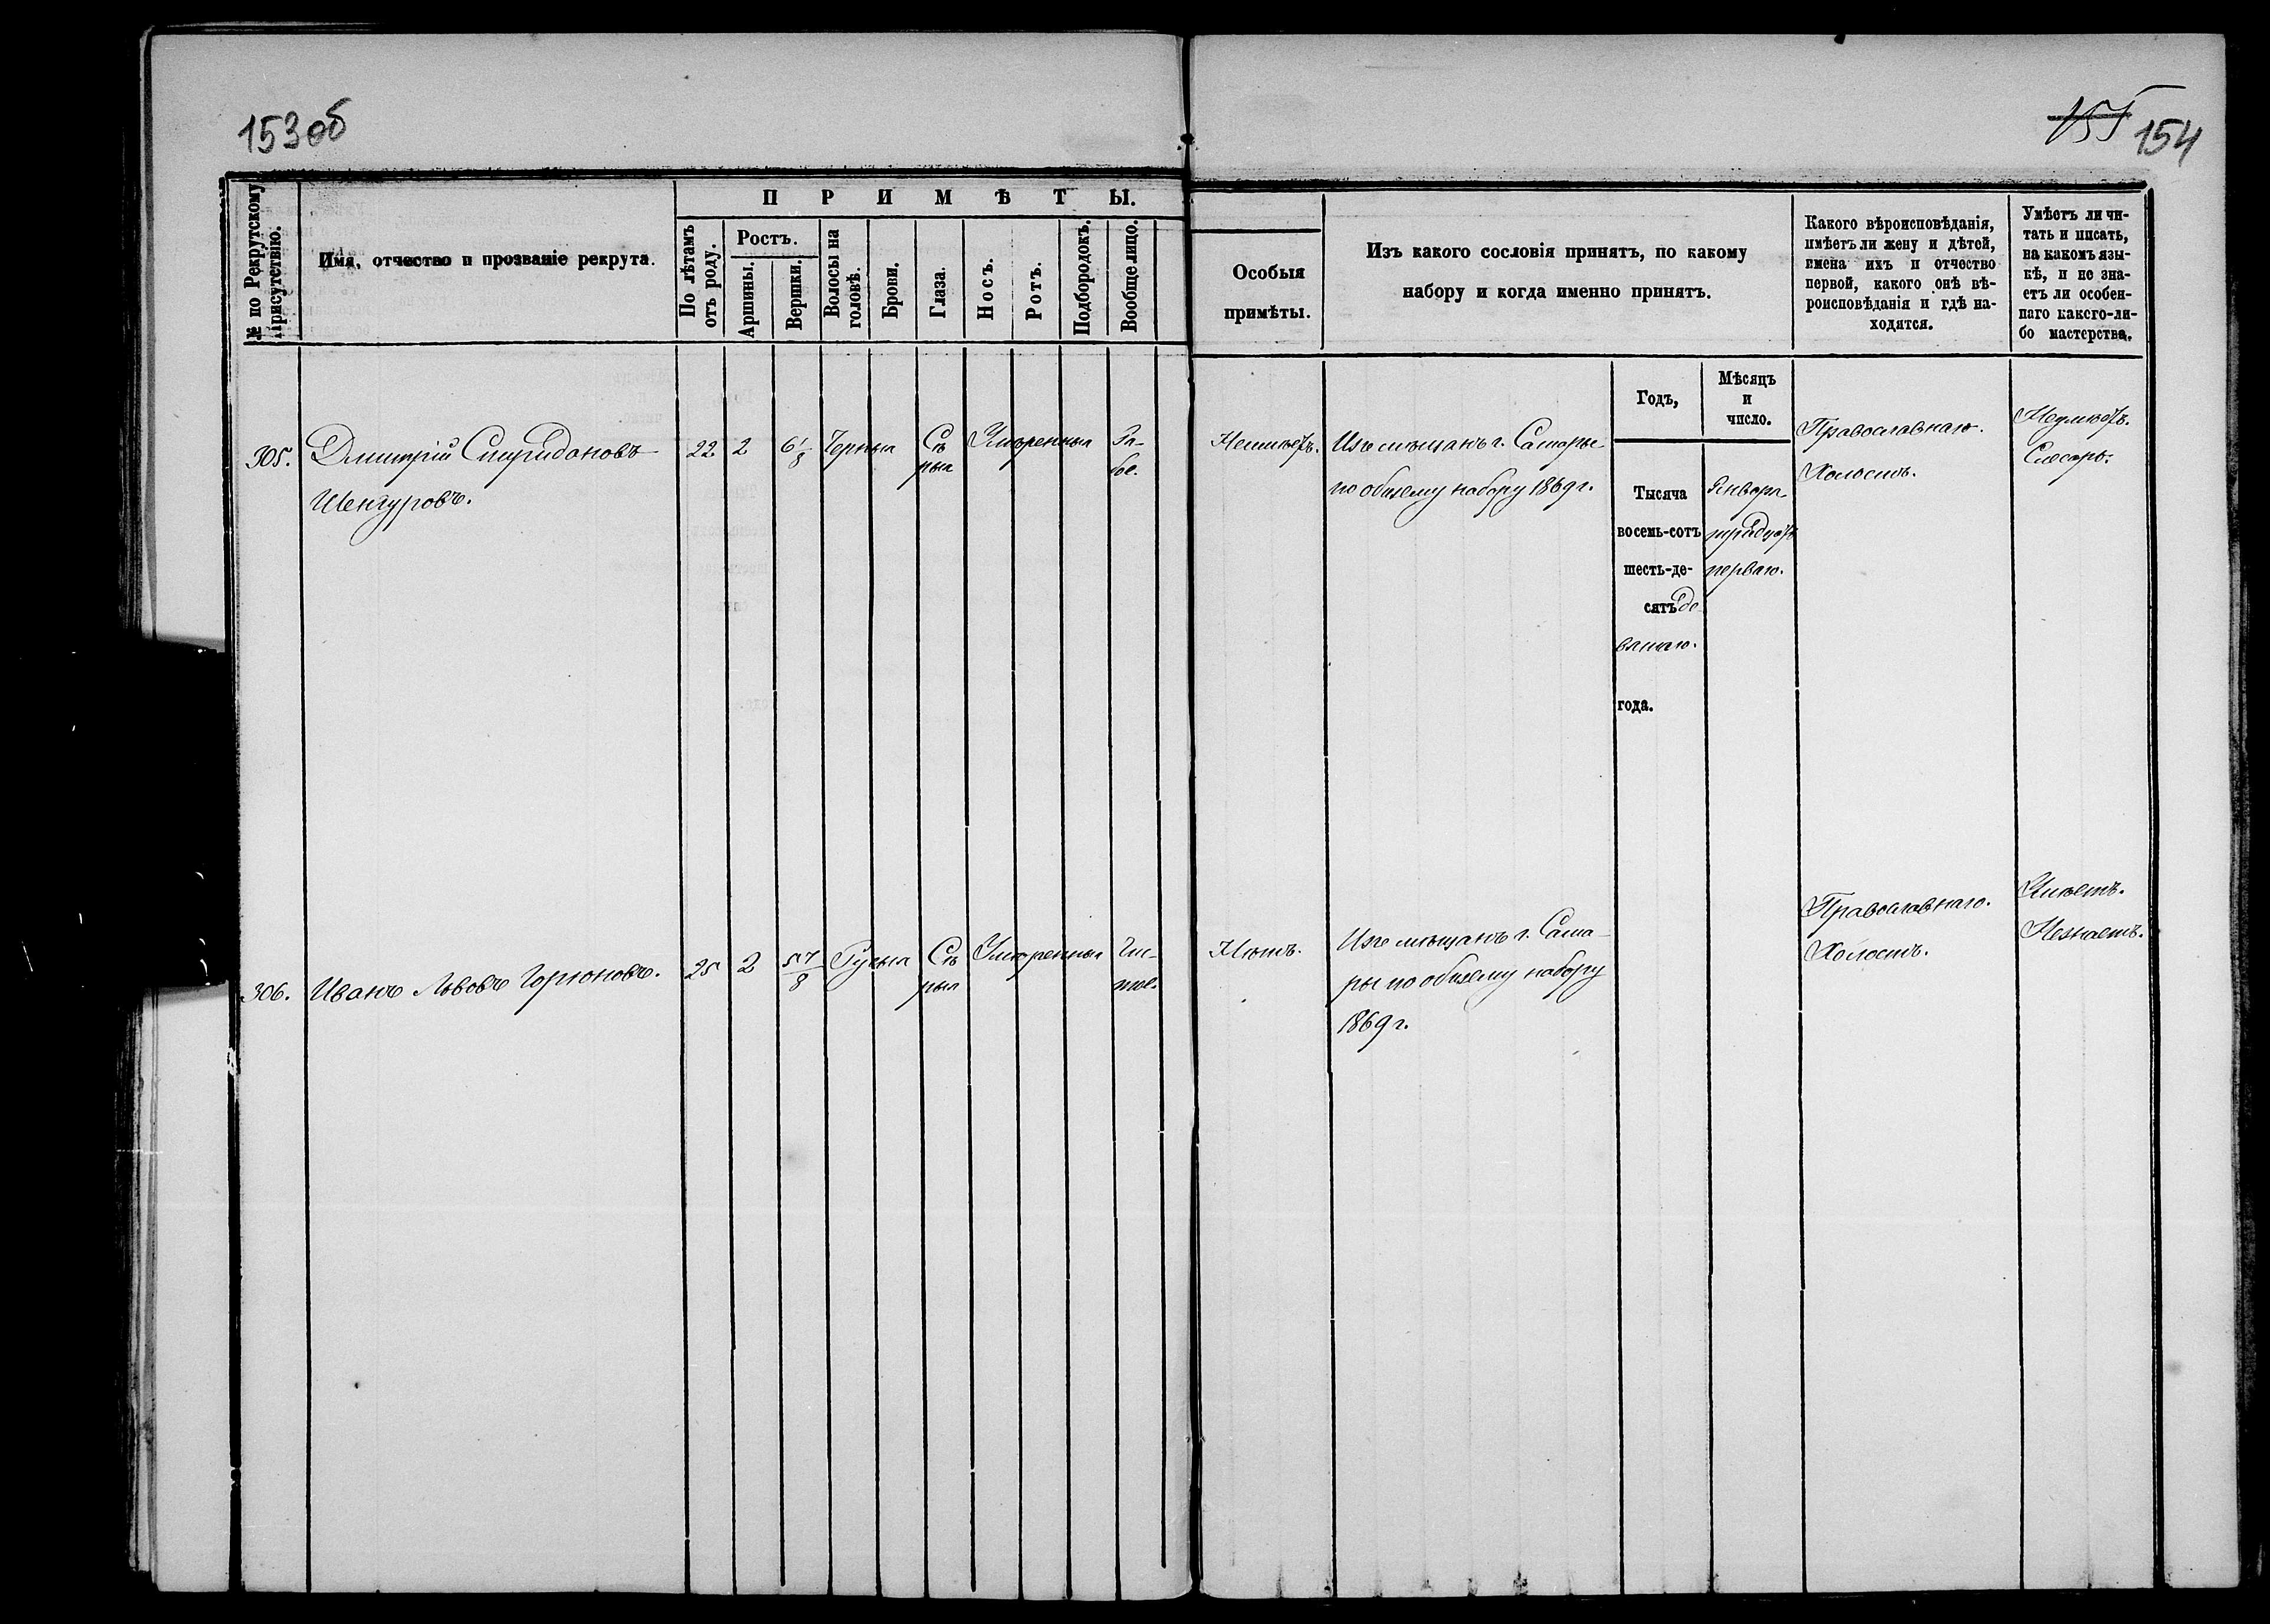 153об
155 154
№ по Рекрутскому присутствію.
Имя, отчество и прозваніе рекрута.
ПРИМѢТЫ.
По лѣтамъ отъ роду.
Ростъ.
Аршины.
Вершки.
Волосы на головѣ.
Брови.
Глаза.
Носъ.
Ротъ.
Подбородокъ.
Вообще лицо.
Особыя
примѣты.
Изъ какого сословія принятъ, по какому
набору и когда именно принятъ.
Какого вѣроисповѣданія,
имѣетъ ли жену и дѣтей,
имена ихъ и отчество
первой, какого онѣ вѣ-
роисповѣданія и гдѣ на-
ходятся.
Умѣетъ ли чи-
тать и писать,
на какомъ язы-
кѣ, и не зна-
етъ ли особен-
наго какого-ли-
бо мастерства.
Годъ,
Мѣсяцъ
и
число.
305. Дмитрій Спиридоновъ 22 2 6 1/8 Черныя Сѣ Умѣренныя Ря-
Шенгуровъ. рыя бое.
Неимѣетъ. Изъ мѣщанъ г. Самары
по общему набору 1869 г.
Тысяча
восемь-сотъ
шесть-де-
сятъ де
вятаго.
года.
Января
тридцать
перваго.
Православнаго.
Холостъ.
Неумѣетъ.
Слесарь.
306. Иванъ Львовъ Горюновъ. 25 2 5 7/8 Русыя Сѣ Умѣренныя Чи-
рыя стое.
Нѣтъ. Изъ мѣщанъ г. Сама-
ры по общему набору
1869 г.
Православнаго.
Холостъ.
Умѣетъ.
Незнаетъ.